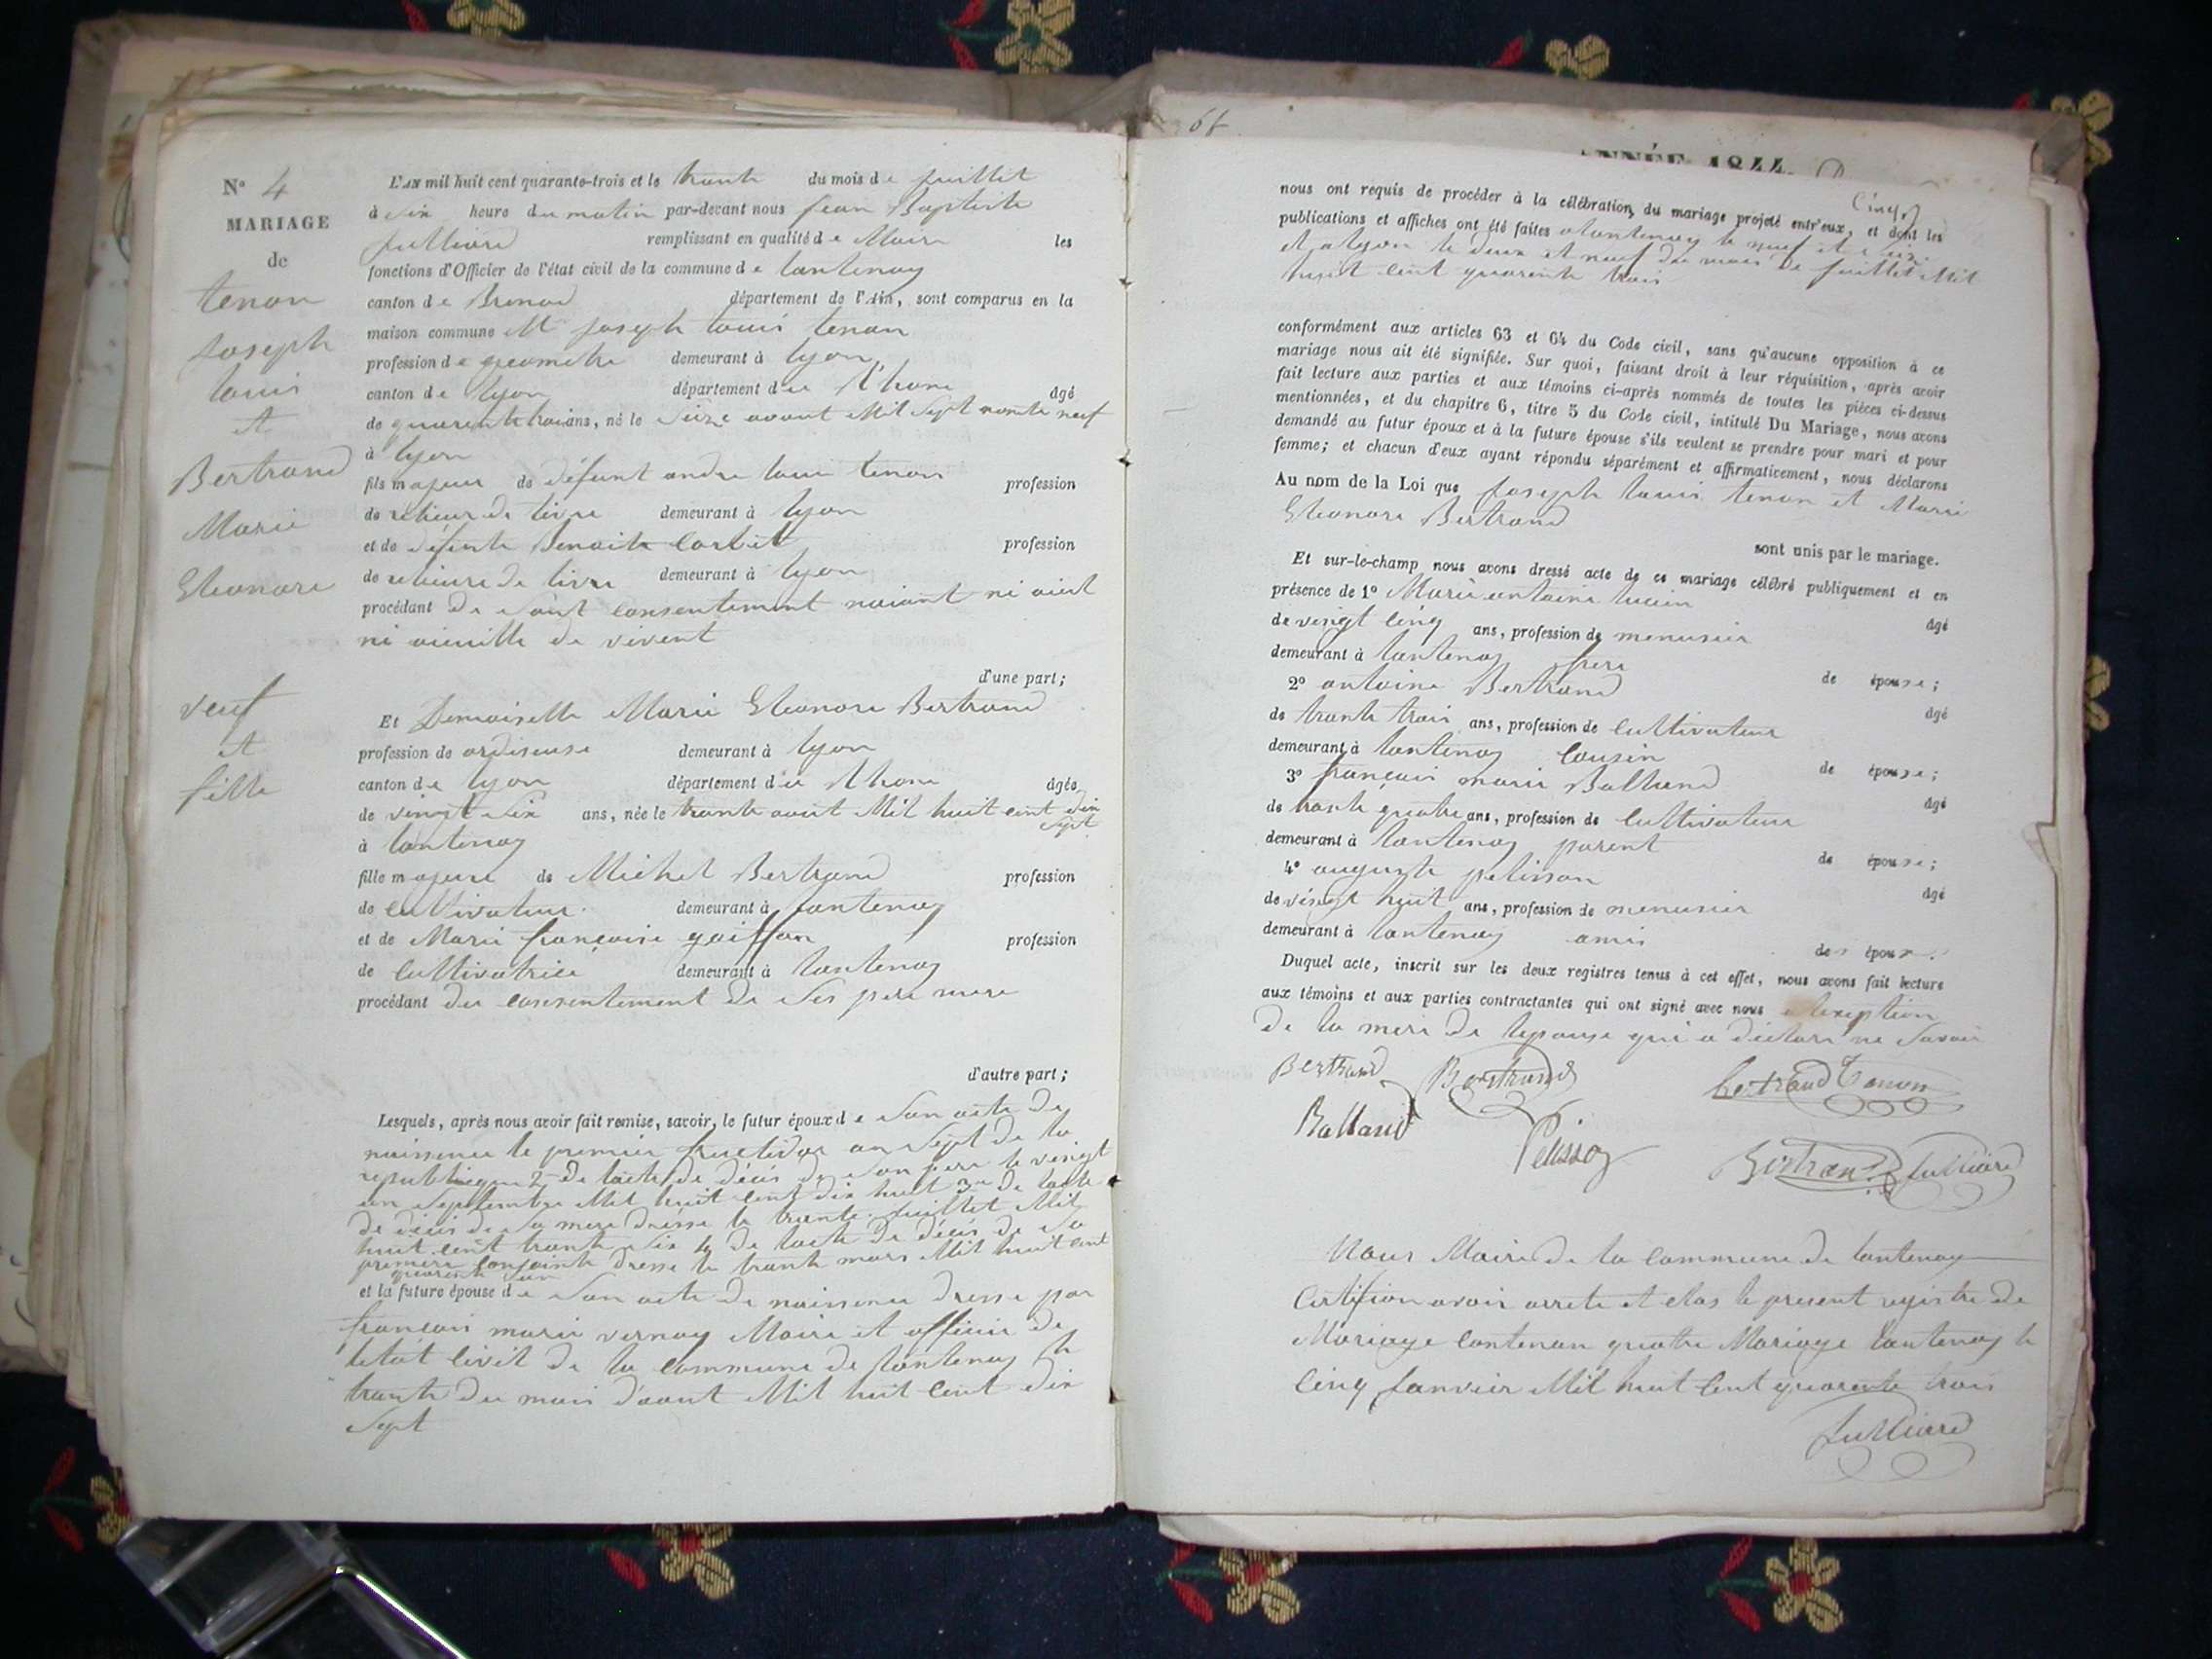 N° 4
MARIAGE
de
tenon
Joseph
louis
et
Bertrand
Marie
Eleonore
veuf
et
fille
L'AN mil huit cent quarante-trois et le trante du mois de juillet
à six heure du matin par-devant nous jean Baptiste
Julliard remplissant en qualité de Maire les
fonctions d'Officier de l'état civil de la commune de lantenay
canton de Brenod département de l'Ain, sont comparus en la
maison commune Mr joseph louis tenon
profession de geometre demeurant à lyon
canton de lyon département du Rhone âgé
de quarente trois ans, né le seize avout Mil sept nonte neuf
à lyon
fils majeur de défunt andre louis tenon profession
de relieur de livre demeurant à lyon
et de défunte Benoite profession
de relieure de livre demeurant à lyon
procédant de sout consentement naiant ni aieul
ni aieulle de vivent
d'une part;
Et Demoiselle Marie Eleonore Bertrand
profession de ordiseuse demeurant à lyon
canton de lyon département du Rhone âgée
de vingt six ans, née le trante aout Mil huit cent dix
sept
à lantenay
fille majeure de Michel Bertrand profession
de cultivateur demeurant à lantenay
et de Marie françoise goiffon profession
de cultivatrice demeurant à lantenay
procédant du consentement de ses pere mere
d'autre part;
Lesquels, après nous avoir fait remise, savoir, le futur époux de son acte de
naissence le premier fructidor an sept de la
republique 2° de lacte de décés de son pere le vingt
un septembre Mil huit cent dix huit 3me de lacte
de décés de sa mere dresse le trante juillet Mil
huit cent trante six 4 de lacte de décés de sa
premiere conjointe dresse le trante mars Mil huit cent
quarente un
et la future épouse de son acte de naissence dresse par
francois marie vernay Maire et officier de
letat civil de la commune de lantenay le
trante du mois d'aout Mil huit cent dix
sept
61
ANNÉE 1844.
nous ont requis de procéder à la célébration du mariage projeté entr'eux, et dont les
publications et affiches ont été faites alantenay le neuf et
et alyon le deux et neuf du mois de juillet Mil
huit cent quarente trois
conformément aux articles 63 et 64 du Code civil, sans qu'aucune opposition à ce
mariage nous ait été signifiée. Sur quoi, faisant droit à leur réquisition, après avoir
fait lecture aux parties et aux témoins ci-après nommés de toutes les pièces ci-dessus
mentionnées, et du chapitre 6, titre 5 du Code civil, intitulé Du Mariage, nous avons
demandé au futur époux et à la future épouse s'ils veulent se prendre pour mari et pour
femme; et chacun d'eux ayant répondu séparément et affirmativement, nous déclarons
Au nom de la Loi que joseph louis tenon et Marie
Eleonore Bertrand
sont unis par le mariage.
Et sur-le-champ nous avons dressé acte de ce mariage célébré publiquement et en
présence de 1° Marie antoine lucien âgé
de vingt cinq ans, profession de menusier
demeurant à lantenay frere de épouse;
2° antoine Bertrand âgé
de trante trois ans, profession de cultivateur
demeurant à lantenay cousin de épouse;
3° françois marie Balland âgé
de trante quatre ans, profession de cultivateur
demeurant à lantenay parent de épouse;
4° auguste pelisson âgé
de vingt huit ans, profession de menusier
demeurant à lantenay amis des époux.
Duquel acte, inscrit sur les deux registres tenus à cet effet, nous avons fait lecture
aux témoins et aux parties contractantes qui ont signé avec nous alexeption
de la mere de lepouse qui a déclare ne savoir
Bertrand Bertrand bertrand Tenon
Balland
Pelisson Bertrand Julliard
Nous Maire de la commune de lantenay
Certifion avoir arrete et clos le present registre de
Mariage contenan quatre Mariage lantenay le
Cinq janvier Mil huit cent quarente trois
Julliard